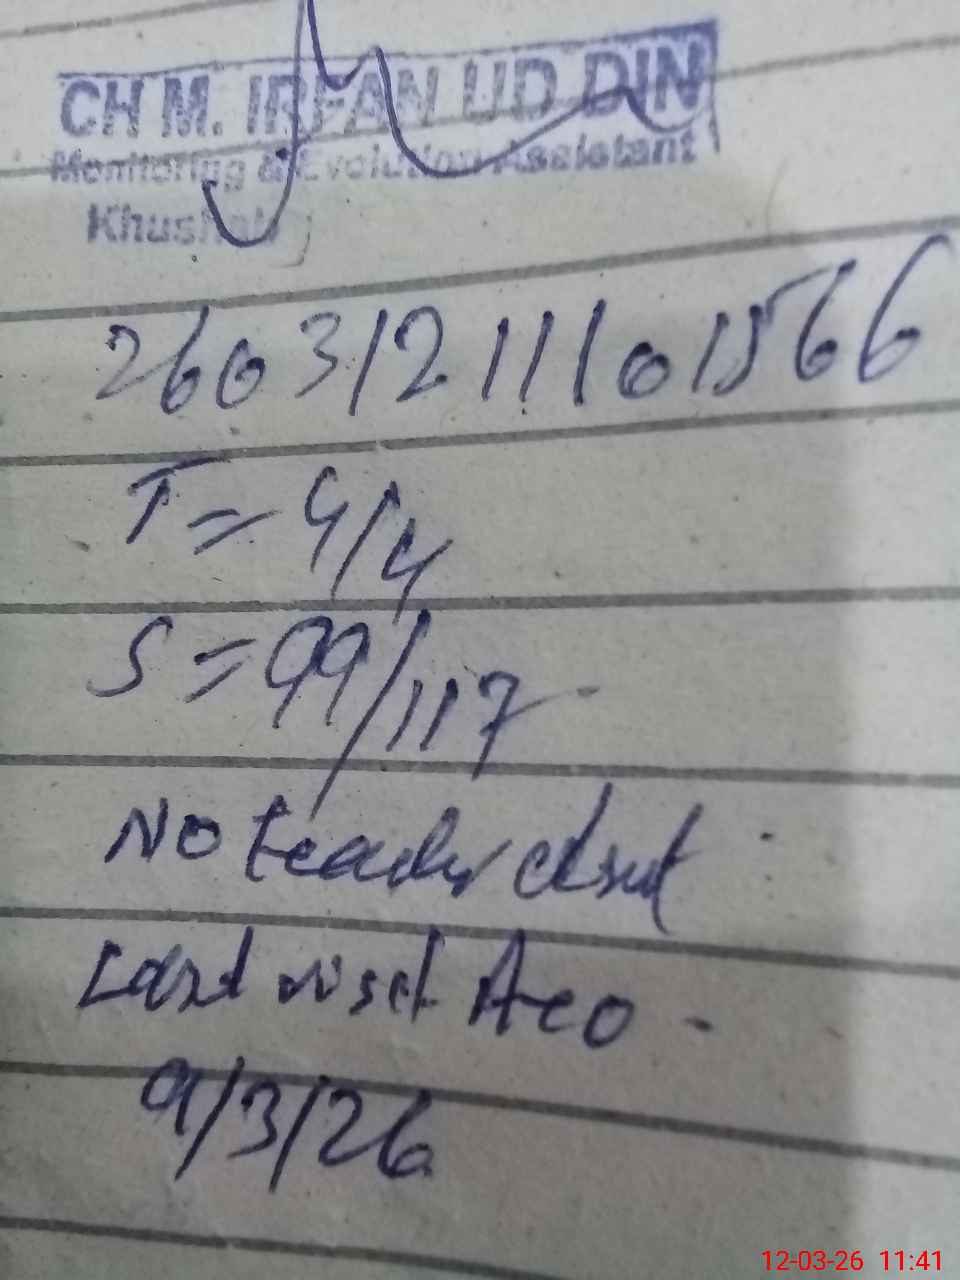 CH M. IRFAN UD DIN
Monitoring & Evolution Assistant
Khushab
26031211101566
T = 4/4
S = 99/117
No teacher absent
Last visit Aeo -
9/3/26
12-03-26 11:41